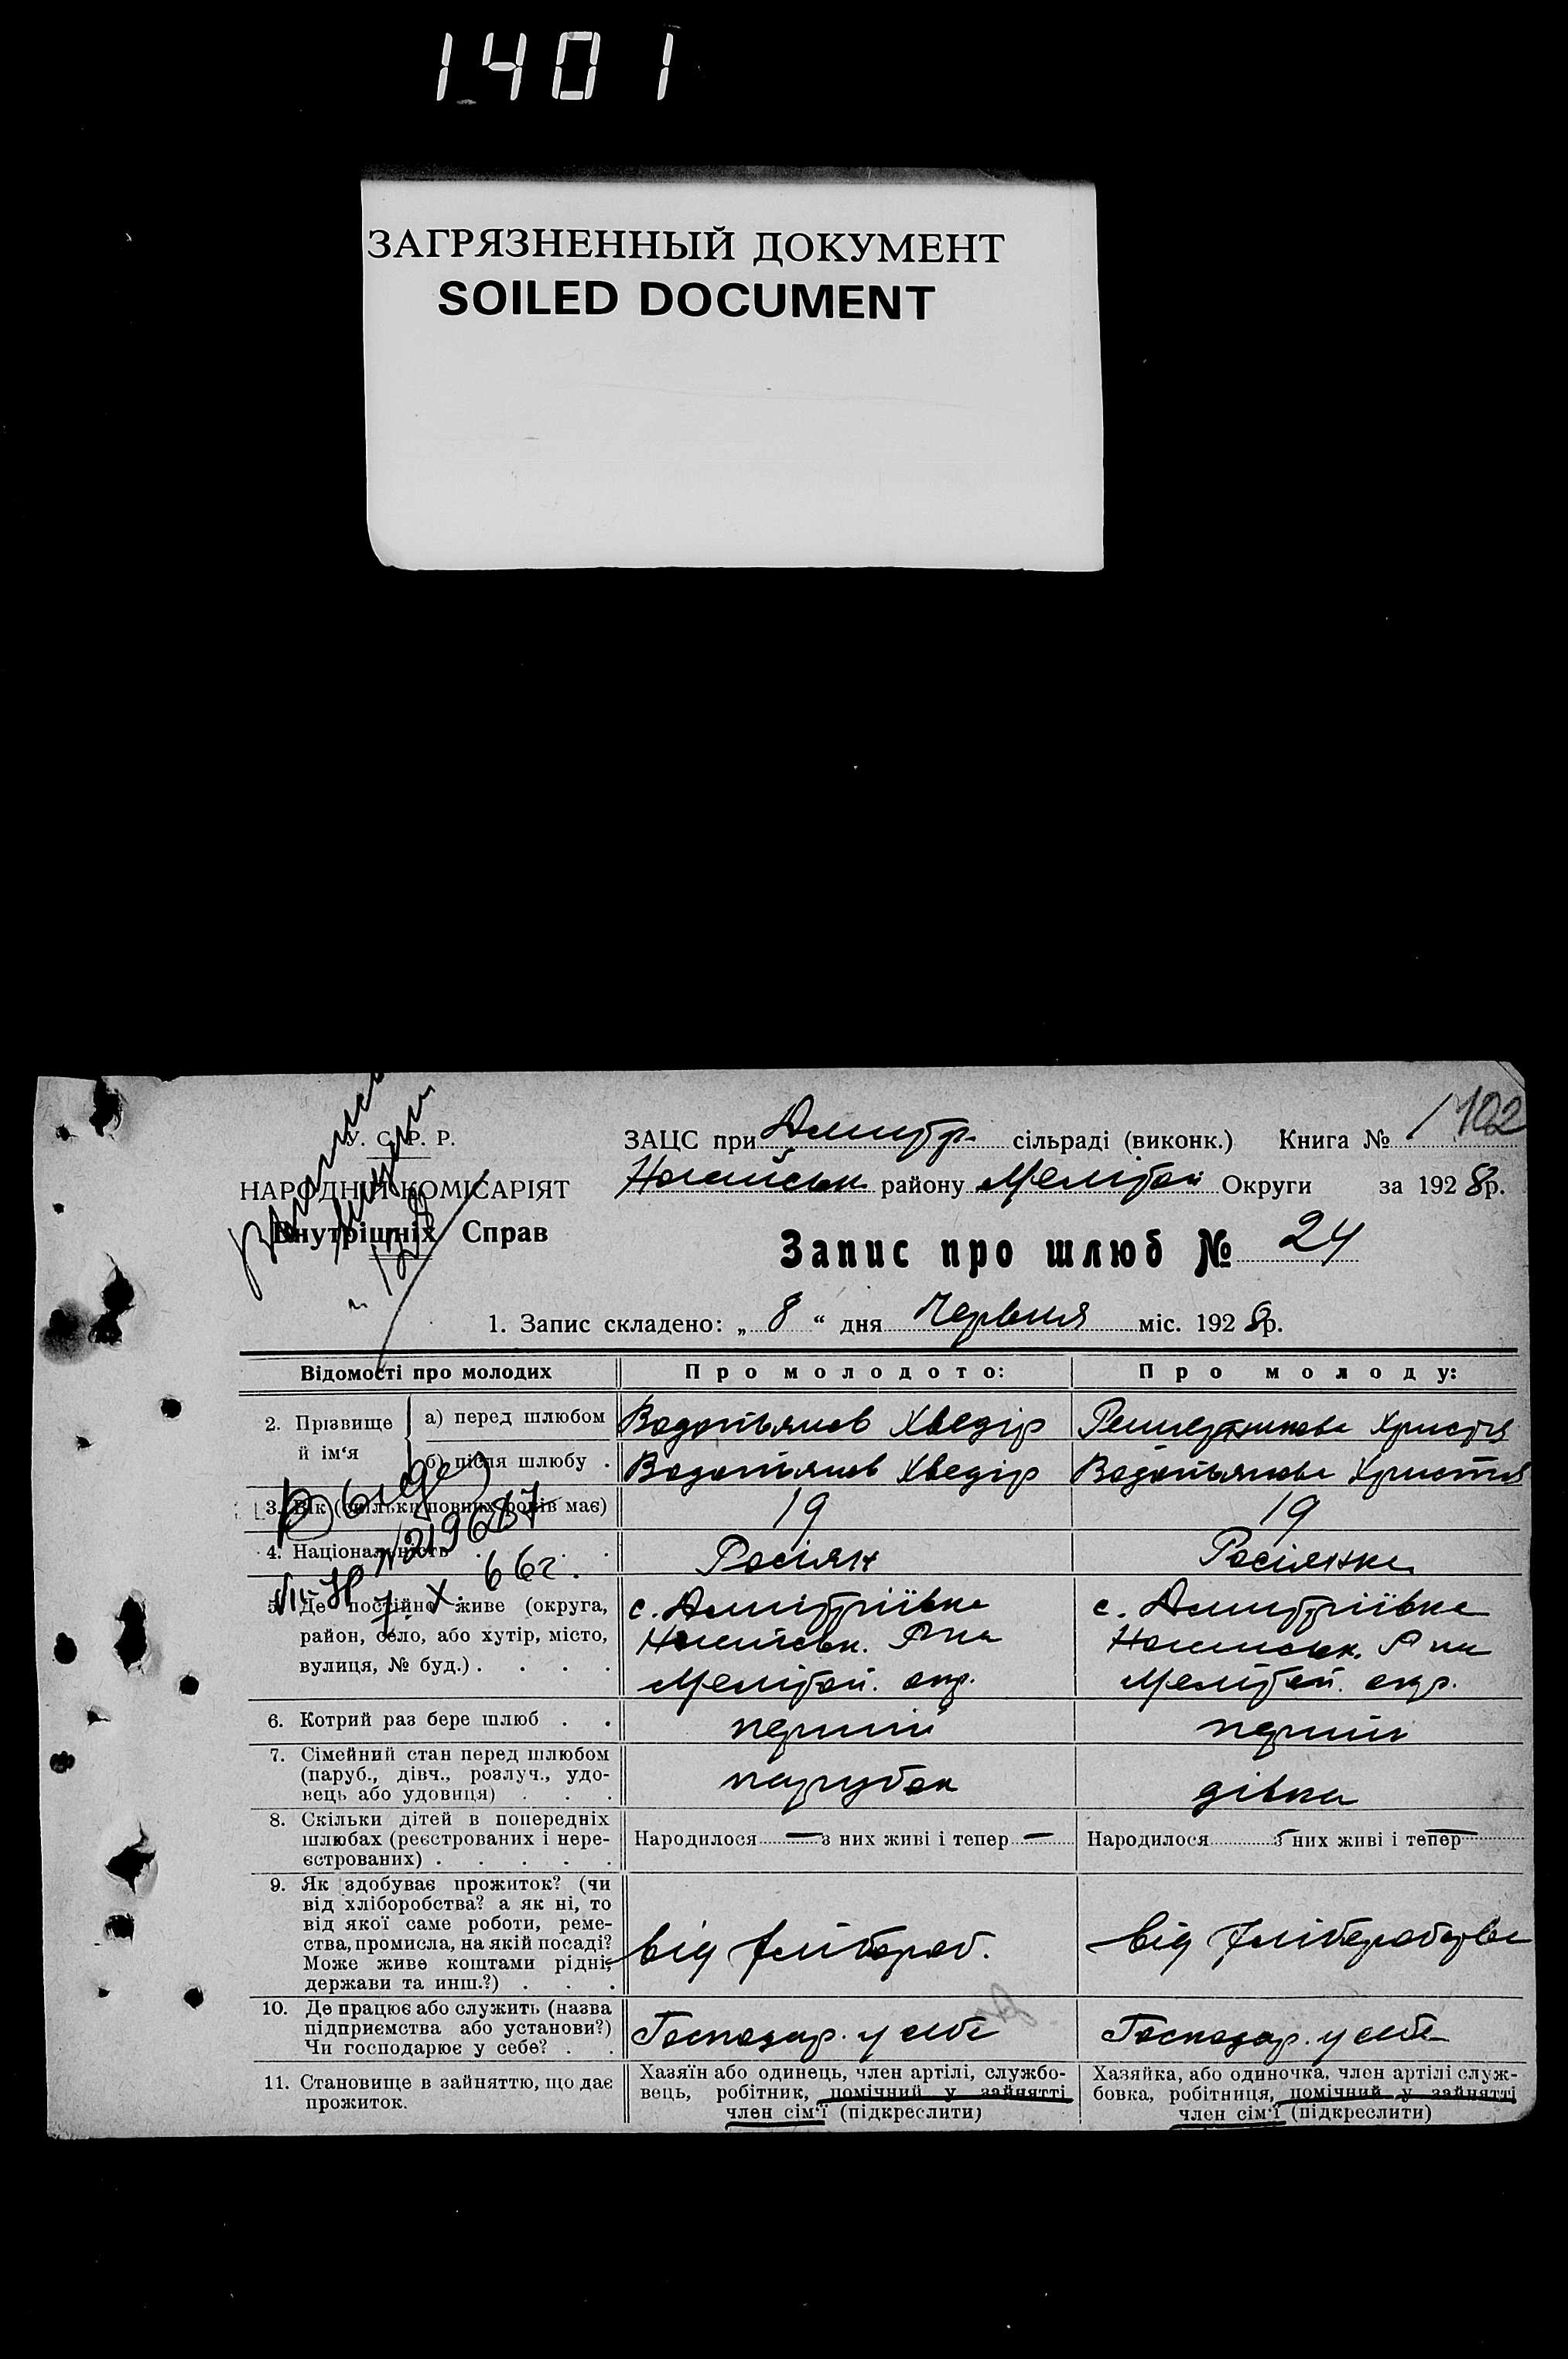 1401
ЗАГРЯЗНЕННЫЙ ДОКУМЕНТ
SOILED DOCUMENT
102
У. С. Р. Р.
НАРОДНІЙ КОМІСАРІЯТ
Внутрішніх Справ
ЗАЦС при Дмитр. сільраді (виконк.) Книга № 1
Ногайськ району Мелітоп Округи за 1928р.
Запис про шлюб № 24
1. Запис складено: „ 8 “ дня Червня міс. 1928р.
Відомості про молодих
Про молодого:
Про молоду:
2. Прізвище й ім‘я
а) перед шлюбом
Водотьянов Хведір
Решетникова Христя
б) після шлюбу .
Водотьянов Хведір
Водотьянова Христя
3. Вік (скільки повних років має)
19
19
4. Національність . . . .
Росіян
Росіянка
№ 219687
7. X. 66г.
5. Де постійно живе (округа,
район, село, або хутір, місто,
вулиця, № буд.) . . . .
с. Дмитріївка
Ногайськ. Р-на
Мелітоп. окр.
с. Дмитріївка
Ногайськ. Р-на
Мелітоп. окр.
6. Котрий раз бере шлюб . .
перший
перший
7. Сімейний стан перед шлюбом
(паруб., дівч., розлуч., удо-
вець або удовиця) . . .
парубок
дівка
8. Скільки дітей в попередніх
шлюбах (реєстрованих і нере-
єстрованих) . . . . .
Народилося — з них живі і тепер —
Народилося — з них живі і тепер —
9. Як здобуває прожиток? (чи
від хліборобства? а як ні, то
від якої саме роботи, реме-
ства, промисла, на якій посаді?
Може живе коштами рідні,
держави та инш.?) . . .
від хлібороб.
від хліборобства
10. Де працює або служить (назва
підприємства або установи?)
Чи господарює у себе? . .
Господар. у себе
Господар. у себе
11. Становище в зайняттю, що дає
прожиток.
Хазяїн або одинець, член артілі, службо-
вець, робітник, помічний у зайнятті
член сім‘ї (підкреслити)
Хазяйка, або одиночка, член артілі служ-
бовка, робітниця, помічний у зайнятті
член сім‘ї (підкреслити)